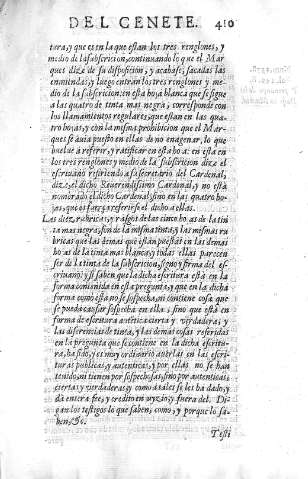 DEL CENETE. 410
tura, y que es en la que estan los tres renglones, y
medio de la subscricion, continuando lo que el Mar
ques dize de su disposicion, y acabase, sacadas las
enmiendas, y luego entran los tres renglones y me-
dio de la subscricion: en esta hoja blanca que se sigue
a las quatro de tinta mas negra, corresponde con
los llamamientos regulares, que estan en las quatro
hojas, y con la misma prohibicion que el Mar
ques se auia puesto en ellas de no enagenar, lo que
buelue a referir, y ratificar en esta hoja: en esta en
los tres renglones y medio de la subscricion dize el
escriuano refiriendo a secretario del Cardenal,
dize, el dicho Reuerendissimo Cardenal, y no està
nombrado el dicho Cardenal sino en las quatro ho-
jas, que es fuerça referirse el dicho a ellas.
Las diez, rubricas, y rasgos de las cinco hojas de la tin
ta mas negra son de la misma tinta, y las mismas ru
bricas que las demas que estàn puestas en las demas
hojas de la tinta mas blanca, y todas ellas parecen
ser de la tinta de la subscricion, signo y firma del es-
criuano: y si saben que la dicha escritura està en la
forma contenida en esta pregunta, y que en la dicha
forma como està no se sospecha, ni contiene cosa que
se pueda causar sospecha en ella, sino que està en
forma de escritura autentica cierta y verdadera, y
las diferencias de tinta, y las demas cosas referidas
en la pregunta que se contiene en la dicha escritu-
ra, ha sido, y es muy ordinario auerlas en las escri
turas publicas, y autenticas, y por ellas no se han
tenido, ni tienen por sospechosas, sino por autenticas,
ciertas y verdaderas, y como a tales se les ha dado, y
dà entera fee, y credito en juyzio, y fuera del. Di
gan los testigos lo que saben, como, y porque lo sa-
ben, &c.
Testi